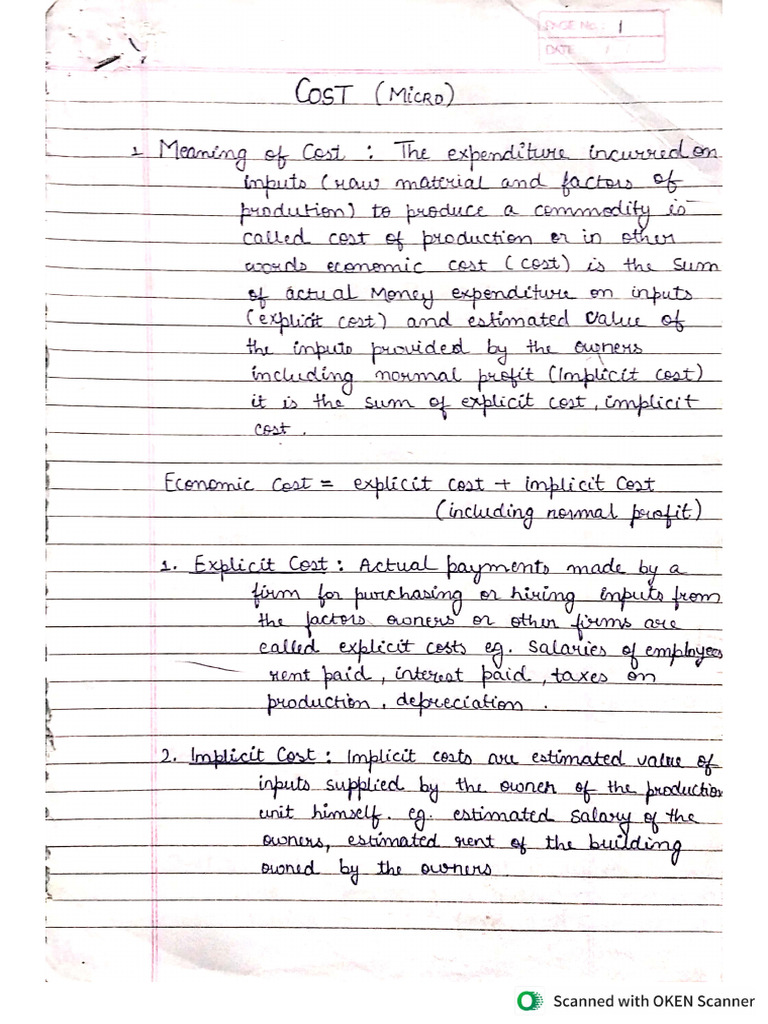 PAGE No.: 1
DATE / /
COST (MICRO)
1 Meaning of Cost : The expenditure incurred on
inputs (raw material and factors of
prodution) to produce a commodity is
called cost of production or in other
words economic cost (cost) is the sum
of actual Money expenditure on inputs
(explicit cost) and estimated value of
the inputs provided by the owners
including normal profit (Implicit cost)
it is the sum of explicit cost, implicit
cost.
Economic Cost = explicit cost + implicit Cost
(including normal profit)
1. Explicit Cost : Actual payments made by a
firm for purchasing or hiring inputs from
the factors owners or other firms are
called explicit costs eg. Salaries of employees
rent paid, interest paid, taxes on
production, depreciation.
2. Implicit Cost : Implicit costs are estimated value of
inputs supplied by the owner of the production
unit himself. eg. estimated salary of the
owners, estimated rent of the building
owned by the owners
Scanned with OKEN Scanner